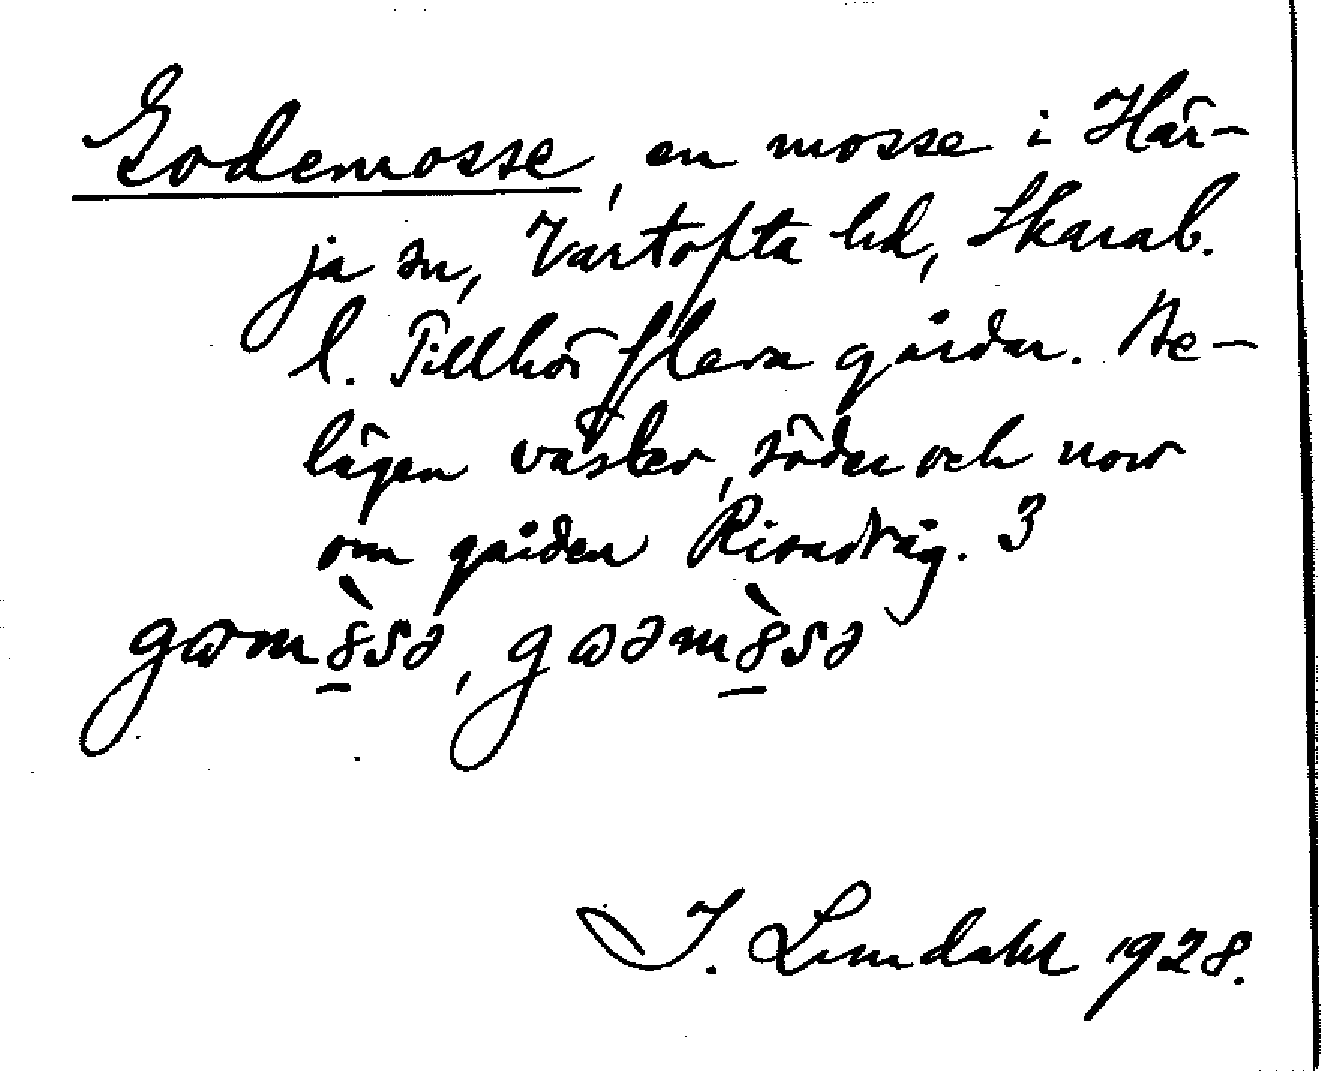 Godemosse, en mosse i Här-
ja sn, Vartofta hd, Skarab.
l. Tillhör flera gårdar. Be-
lägen väster, söder och norr
om gården 3
J. Lundahl 1928.